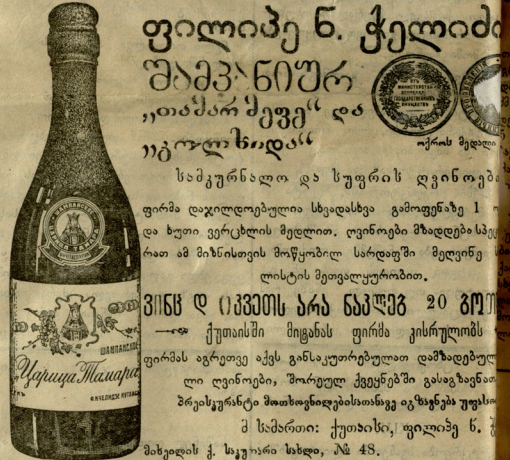 ფილიპე ნ. ჭელიძ
შამპანიურ
„თამარ მეფე“ და
„გოლხიდა“
ოქროს მედალი
სამკურნალო და სუფრის ღვინოებ
ფირმა დაჯილდოებულია სხვადასხვა გამოფენაზე 1 ო
და ხუთი ვერცხლის მედლით. ღვინოები მზადდება სპეც
რათ ამ მიზნისთვის მოწყობილ სარდაფში მეღვინე ს
ლისტის მეთვალყურობით.
ვინც დ იკვეთს არა ნაკლებ 20 ბოთ
ქუთაისში მიტანას ფირმა კისრულობს
ფირმას აგრეთვე აქვს განსაკუთრებულათ დამზადებულ
ლი ღვინოები, შორეულ ქვეყნებში გასაგზავნათ
პრეისკურანტი მოთხოვნილებისათანავე იგზავნება უფასო
მ სამართი: ქუთაისი, ფილიპე ნ. ჭ
მიხეილის ქ. საკუთარი სახლი, № 48.
ШАМПАНСКОЕ
Царица Тамара
МИНИСТЕРСТВА
ГОСУДАРСТВЕННЫХЪ
ИМУЩЕСТВЪ